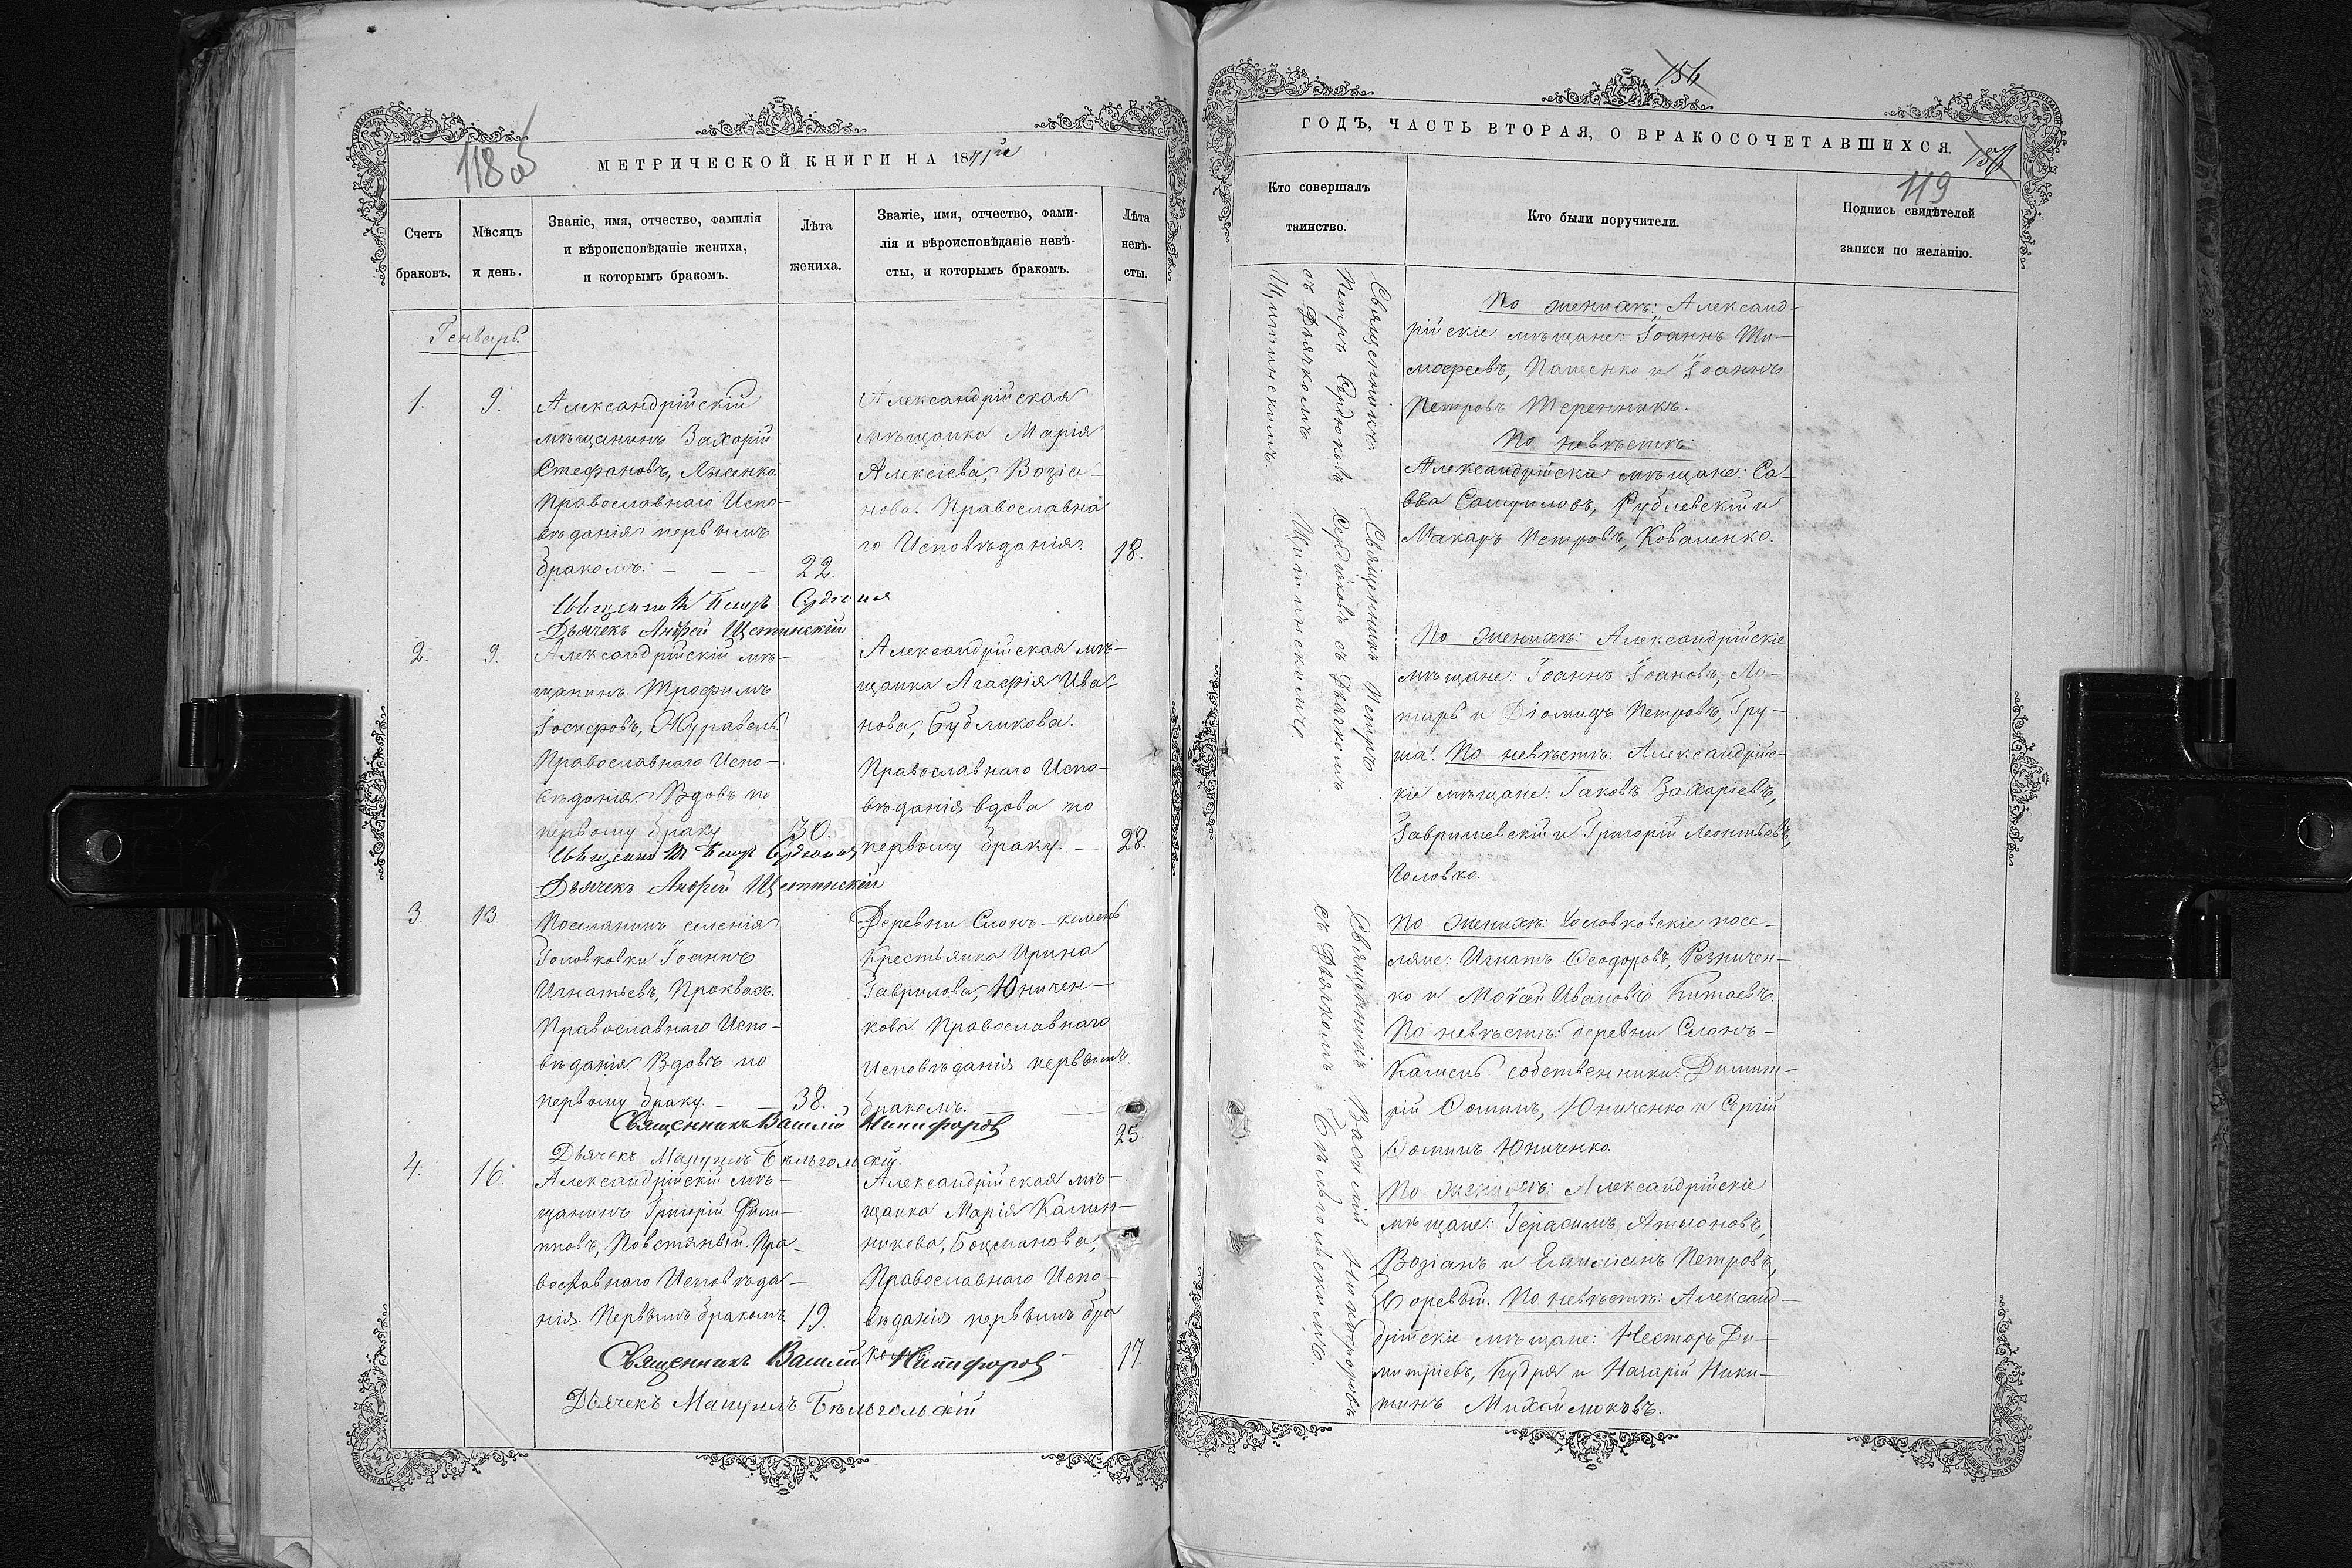 118 об
МЕТРИЧЕСКОЙ КНИГИ НА 1871й
Счетъ
браковъ.
Мѣсяцъ
и день.
Званіе, имя, отчество, фамилія
и вѣроисповѣданіе жениха,
и которымъ бракомъ.
Лѣта
жениха.
Званіе, имя, отчество, фами-
лія и вѣроисповѣданіе невѣ-
сты, и которымъ бракомъ.
Лѣта
невѣ-
сты.
Генварь
1.
9.
Александрійскій
мѣщанинъ Захарій
Стефановъ, Лысенко.
Православнаго Испо-
вѣданія первымъ
бракомъ. — — —
22.
Александрійская
мѣщанка Марія
Алексіева, Возіа-
нова. Православна
го Исповѣданія.
18.
Священникъ Петръ
Дьячекъ Андрей Щетинскій
2.
9.
Александрійскій мѣ-
щанинъ Трофимъ
Іосифовъ, Журавель.
Православнаго Испо-
вѣданія. Вдовъ по
первому браку
30.
Александрійская мѣ-
щанка Агафія Ива-
нова, Бубликова.
Православнаго Испо-
вѣданія вдова по
первому браку. —
28.
Священникъ Петръ
Дьячекъ Андрей Щетинскій
3.
13.
Поселянинъ селенія
Головковки Іоаннъ
Игнатьевъ, Проквасъ.
Православнаго Испо-
вѣданія. Вдовъ по
первому браку. — —
38.
Деревни Слонъ-камень
Крестьянка Ирина
Гаврилова, Юничен-
кова. Православнаго
Исповѣданія первымъ
бракомъ. —
25.
Священникъ Василій Никифоровъ
Дьячекъ Мануилъ Бѣльгольскій.
4.
16.
Александрійскій мѣ-
щанинъ Григорій Фили-
повъ, Повстяный. Пра-
вославнаго Исповѣда-
нія. Первымъ бракомъ
19.
Александрійская мѣ-
щанка Марія Калин-
никова, Боцманова,
Православнаго Испо-
вѣданія первымъ бра
комъ
17.
Священникъ Василій Никифоровъ
Дьячекъ Мануилъ Бѣльгольскій
156
ГОДЪ, ЧАСТЬ ВТОРАЯ, О БРАКОСОЧЕТАВШИХСЯ
157
119
Кто совершалъ
таинство.
Кто были поручители.
Подпись свидѣтелей
записи по желанію.
Священникъ
Петръ Сердюковъ
съ Дьячкомъ
Щитинскимъ.
Священникъ Петръ
Сердюковъ съ Дьячкомъ
Щитинскимъ.
Священникъ Василій Никифоровъ
съ Дьячкомъ Бѣльгольскимъ.
По женихѣ: Александ-
рійскіе мѣщане: Іоаннъ Ти-
мофеевъ, Пащенко и Іоаннъ
Петровъ Теренникъ.
По невѣстѣ:
Александрійскіе мѣщане: Са-
вва Самуиловъ, Рублевскій и
Макаръ Петровъ, Коваленко.
По женихѣ: Александрійскіе
мѣщане: Іоаннъ Іоановъ, Ло-
тарь и Діомидъ Петровъ, Гру-
ша. По невѣстѣ: Александрійс-
кіе мѣщане: Іаковъ Захаріевъ,
Гаврилевскій и Григорій Леонтьевъ,
Головко.
По женихѣ: Головковскіе посе-
ляне: Игнатъ Феодоровъ, Резничен-
ко и Мойсей Ивановъ Китаевъ.
По невѣстѣ: деревни Слонъ-
Камень собственники: Димит-
рій Фоминъ, Юниченко и Сергій
Фоминъ Юниченко.
По женихѣ: Александрійскіе
мѣщане: Герасимъ Агмоновъ,
Возіанъ и Емиліанъ Петровъ,
По невѣстѣ: Александ-
рійскіе мѣщане: Несторъ Ди-
митріевъ, Кудря и Назарій Ники-
тинъ Михайлюковъ.